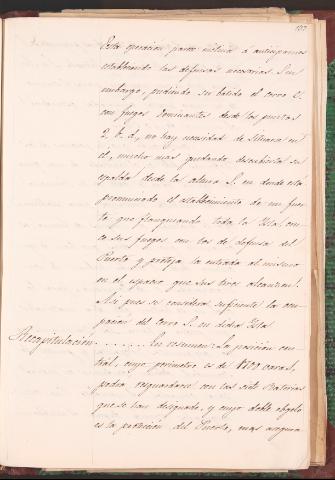 Esta operacion parece inclinar á anticiparnos
estableciendo las defensas necesarias. Sin
embargo, pudiendo ser batido el cerro
con fuegos dominantes desde los puntos
no hay necesidad de situarse en
él, mucho mas quedando descubierta su
espalda desde la altura S. en donde está
el establecimiento de un fuer-
te que flanqueando toda la Isla
sus fuegos con los de defensa del
Puerto y proteja la entrada al mismo
en el espacio que sus tiros alcanzan.
Asi pues se considera suficiente la ocu-
pacion del Cerro S. en dicha Isla
Recapitulacion. ...... En resumen: La posicion cen-
tral, cuyo perimetro es de 1700 varas,
podra resguardarse con las siete Baterias
que se han designado, y cuyo doble objeto
es la proteccion del Puerto, mas asegura